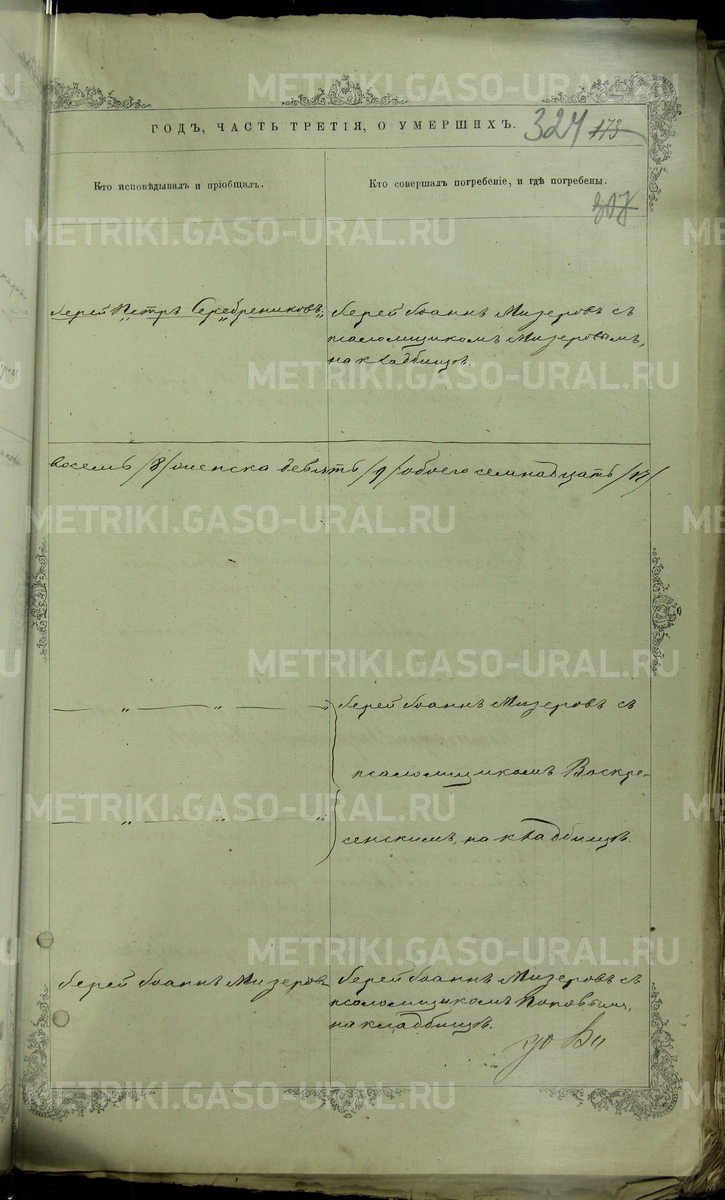 ГОДЪ, ЧАСТЬ ТРЕТІЯ, О УМЕРШИХЪ. 324 173
Кто исповѣдывалъ и пріобщалъ.
Кто совершалъ погребеніе, и гдѣ погребены.
307
Іерей Петръ Серебрениковъ
Іерей Іоаннъ Мизеровъ съ
псаломщикомъ Мизеровымъ,
на кладбищѣ.
восемь /8/ женска девять /9/ обоего семнадцать /17/
— „ — „ — „
Іерей Іоаннъ Мизеровъ съ
псаломщикомъ Воскре-
— „ — „ — „
сенскимъ, на кладбищѣ.
Іерей Іоаннъ Мизеровъ
Іерей Іоаннъ Мизеровъ съ
псаломщикомъ Поповымъ,
на кладбищѣ.
METRIKI.GASO-URAL.RU